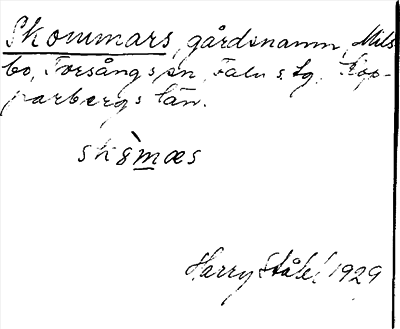 Skommars, gårdsnamn, Mils-
bo, Torsångs sn, Falu s tg, Kop-
parbergs län.
skòmæs
Harry Ståhl 1929